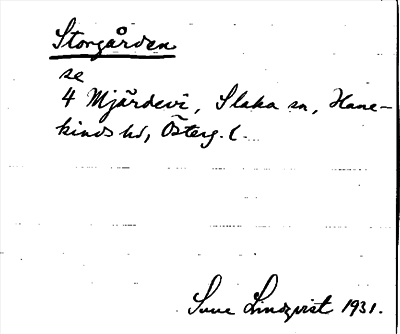 Storgården
se
4 Mjärdevi, Slaka sn, Hane-
kinds hd, Österg. l.
Sune Lindqvist 1931.